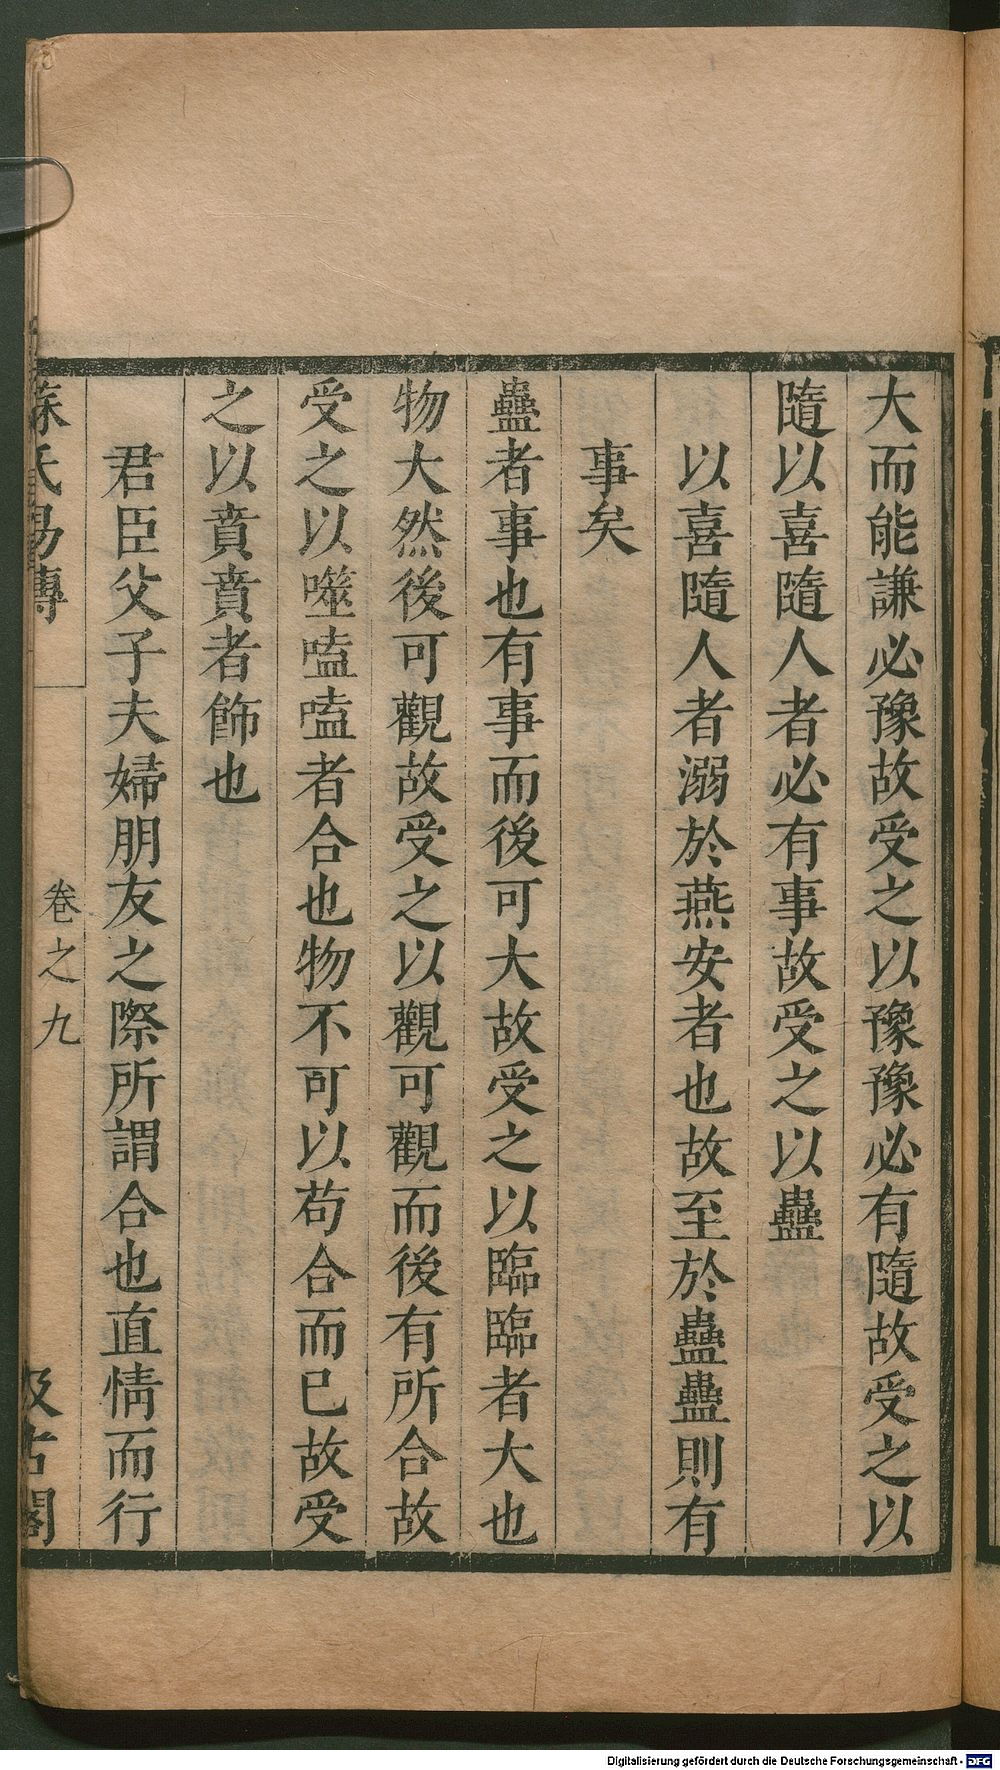 大而能謙必豫故受之以豫豫必有隨故受之以
隨以喜隨人者必有事故受之以蠱
以喜隨人者溺於燕安者也故至於蠱蠱則有
事矣
蠱者事也有事而後可大故受之以臨臨者大也
物大然後可觀故受之以觀可觀而後有所合故
受之以噬嗑嗑者合也物不可以苟合而已故受
之以賁賁者飾也
君臣父子夫婦朋友之際所謂合也直情而行
蘇氏易傳
卷之九
汲古閣
Digitalisierung gefördert durch die Deutsche Forschungsgemeinschaft - DFG